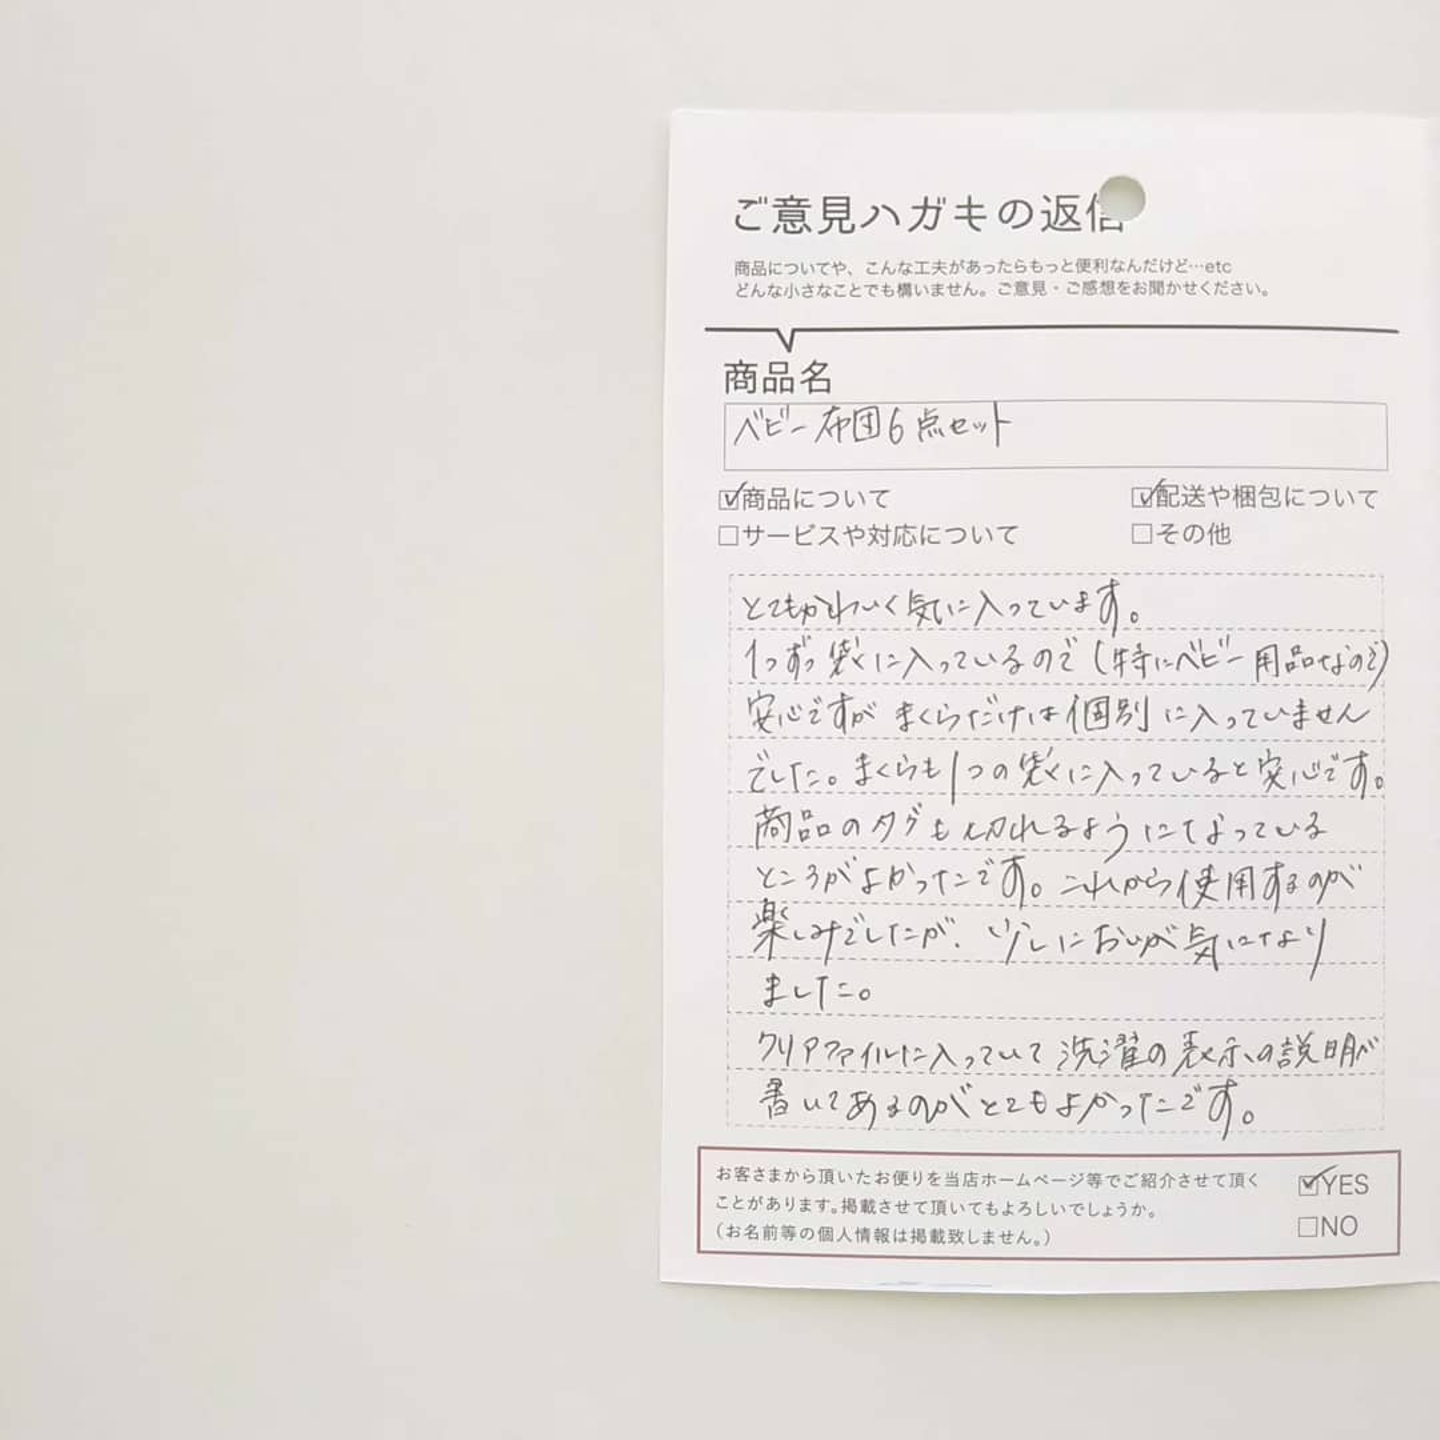 ご意見ハガキの返信
商品についてや、こんな工夫があったらもっと便利なんだけど…etc
どんな小さなことでも構いません。ご意見・ご感想をお聞かせください。
商品名
ベビー布団6点セット
☑商品について ☑配送や梱包について
☐サービスや対応について ☐その他
とてもかわいく気に入っています。
1つずつ袋に入っているので(特にベビー用品なので)
安心ですが まくらだけは個別に入っていません
でした。まくらも1つの袋に入っていると安心です。
商品のタグも切れるようになっている
ところがよかったです。これから使用するのが
楽しみでしたが、少しにおいが気になり
ました。
クリアファイルに入っていて洗濯の表示の説明が
書いてあるのがとてもよかったです。
お客さまから頂いたお便りを当店ホームページ等でご紹介させて頂く ☑YES
ことがあります。掲載させて頂いてもよろしいでしょうか。
(お名前等の個人情報は掲載致しません。) ☐NO